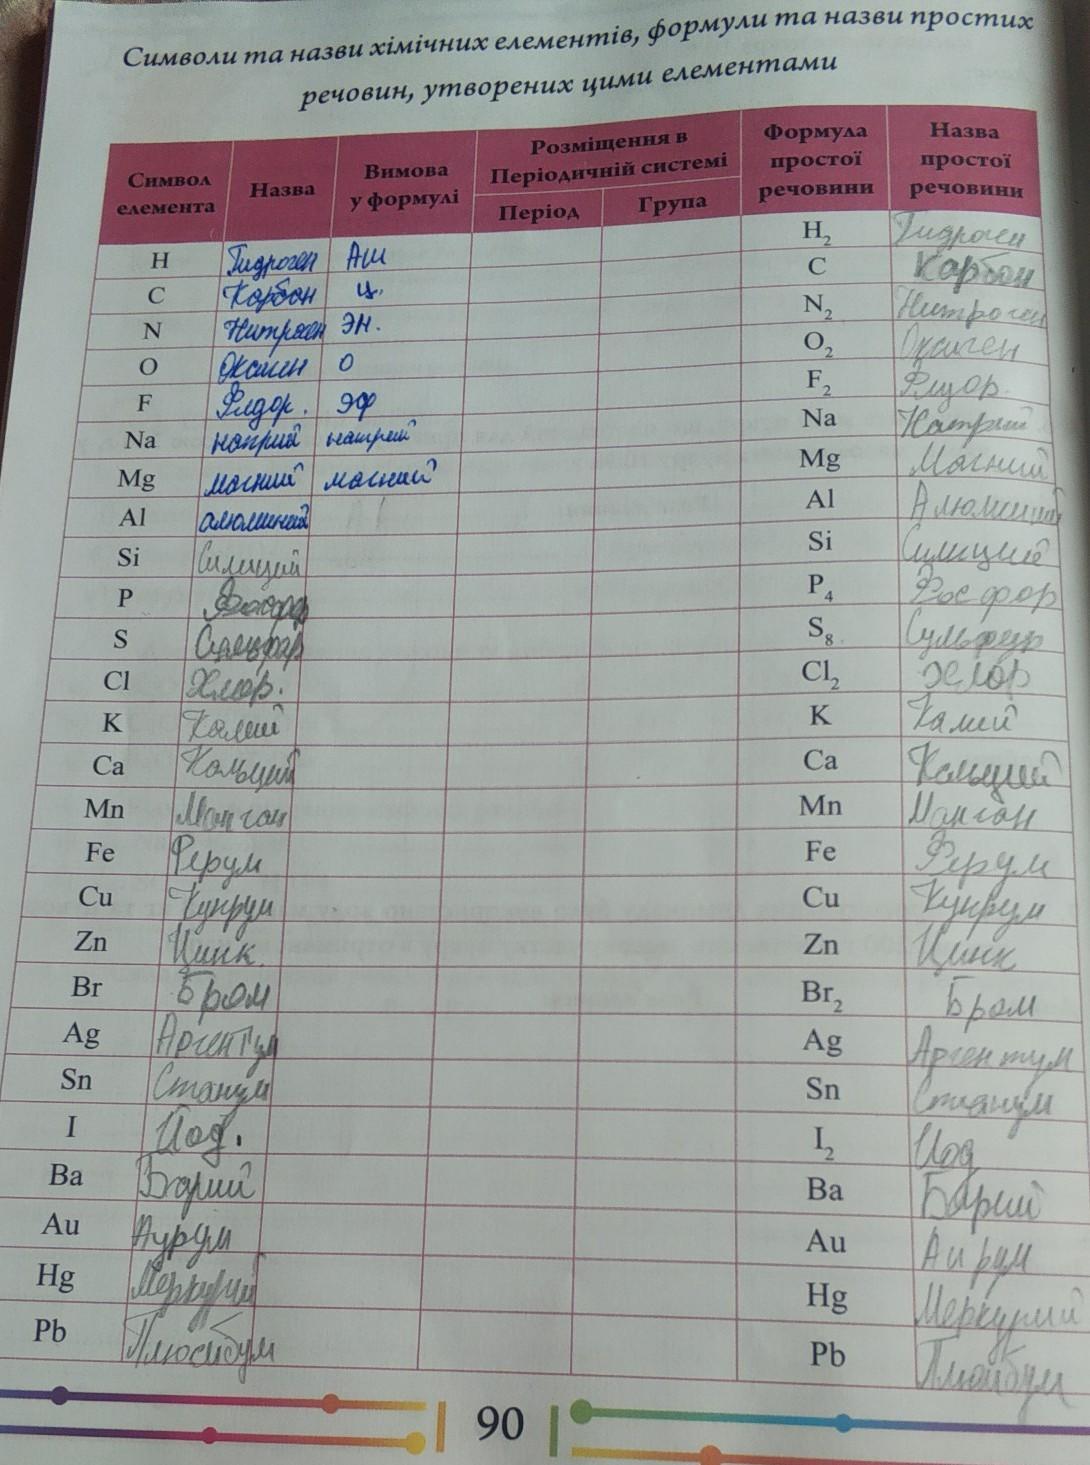 Символи та назви хімічних елементів, формули та назви простих
речовин, утворених цими елементами
Символ елемента Назва Вимова у формулі Розміщення в Періодичній системі Період Група Формула простої речовини Назва простої речовини
H Гидроген Аш H₂ Гидроген
C Карбон Ц. C Карбон
N Нитроген ЭН. N₂ Нитроген
O Оксиген О O₂ Оксиген
F Флуор. ЭФ F₂ Флуор.
Na натрий натрий Na Натрий
Mg магний магний Mg Магний
Al алюминий Al Алюминий
Si Силиций Si Силиций
P Фосфор P₄ Фосфор
S Сульфур S₈ Сульфур
Cl Хлор. Cl₂ Хлор
K Калий K Калий
Ca Кальций Ca Кальций
Mn Манган Mn Манган
Fe Ферум Fe Ферум
Cu Купрум Cu Купрум
Zn Цинк. Zn Цинк
Br Бром Br₂ Бром
Ag Аргентум Ag Аргентум
Sn Станум Sn Станум
I Иод. I₂ Иод
Ba Барий Ba Барий
Au Аурум Au Аурум
Hg Меркурий Hg Меркурий
Pb Pb
90